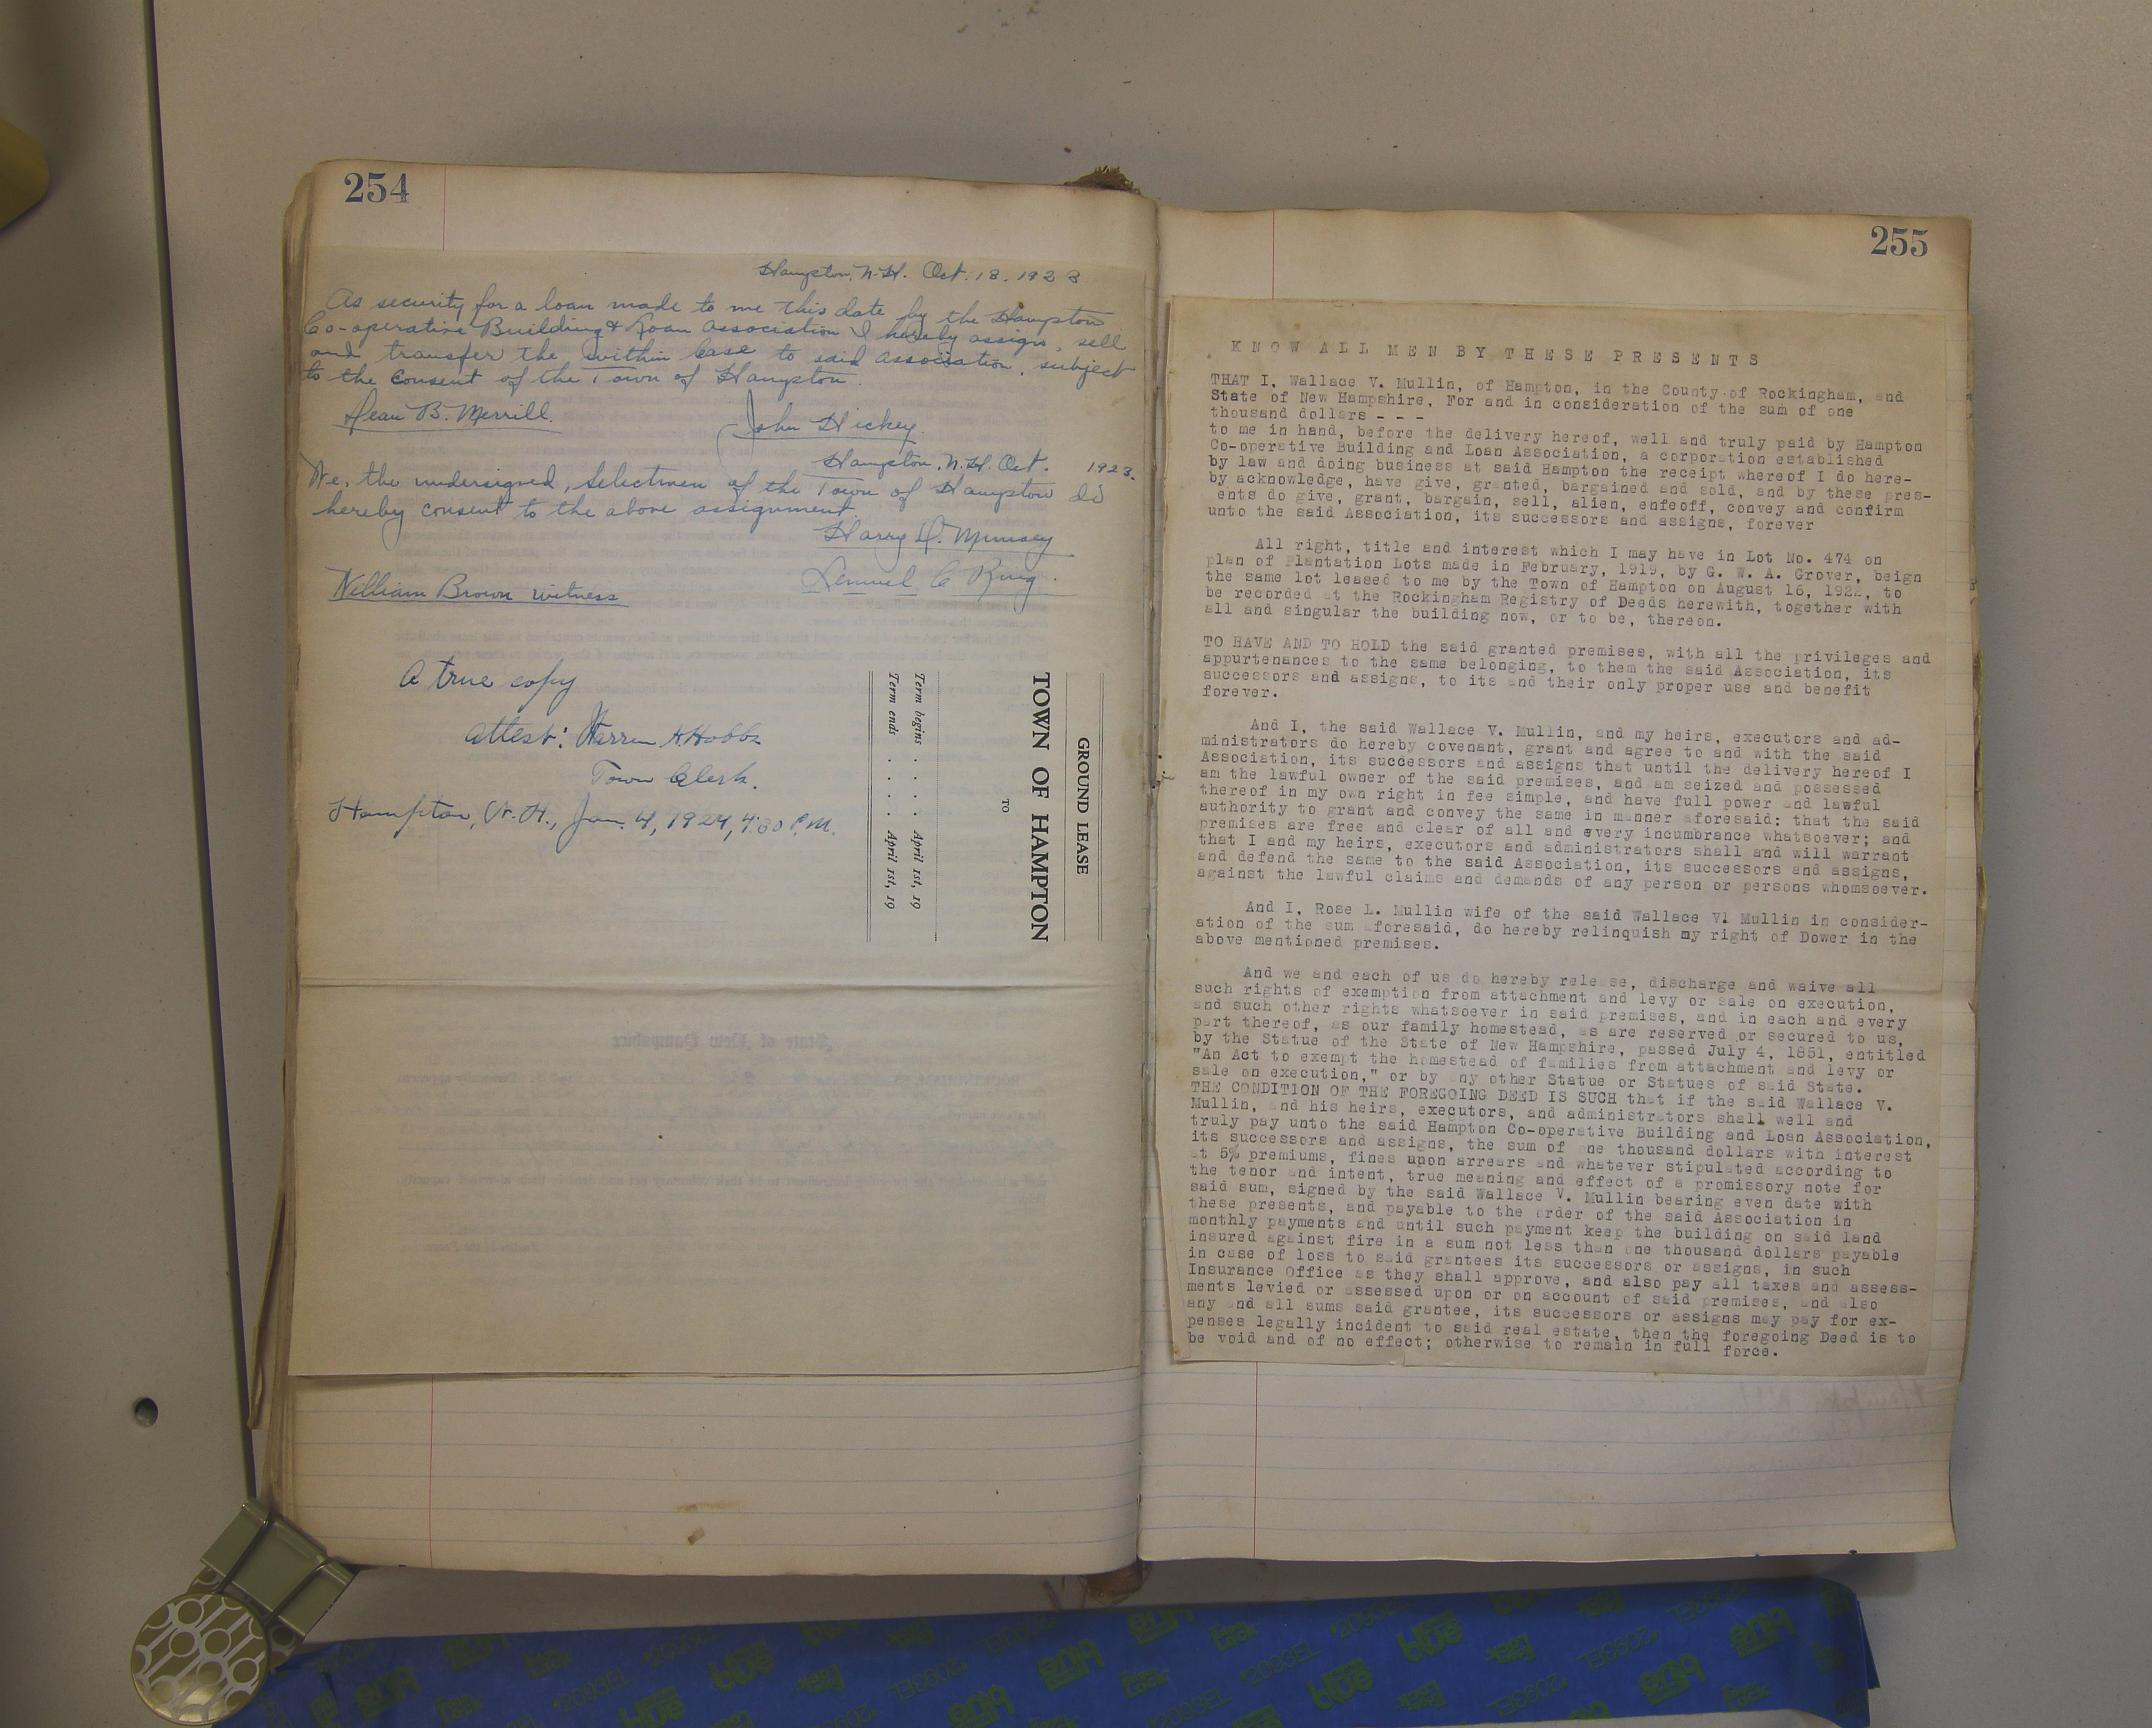 254
Hampton, N.H. Oct. 18. 1923
As security for a loan made to me this date by the Hampton
Co-operative Building & Loan Association I hereby assign, sell
and transfer the within lease to said association, subject
to the consent of the Town of Hampton.
Dean B. Merrill.
John Hickey.
Hampton, N.H. Oct. 1923.
We, the undersigned, Selectmen of the Town of Hampton do
hereby consent to the above assignment.
Harry D. Munsey
Lemuel C Ring.
William Brown witness
A true copy
Attest: Warren H. Hobbs
Town Clerk.
Hampton, N.H., Jan. 4, 1924, 4:30 P.M.
GROUND LEASE
TO
TOWN OF HAMPTON
Term begins . . . . April 1st, 19
Term ends . . . . April 1st, 19
255
KNOW ALL MEN BY THESE PRESENTS
THAT I, Wallace V. Mullin, of Hampton, in the County of Rockingham, and
State of New Hampshire, For and in consideration of the sum of one
thousand dollars - - -
to me in hand, before the delivery hereof, well and truly paid by Hampton
Co-operative Building and Loan Association, a corporation established
by law and doing business at said Hampton the receipt whereof I do here-
by acknowledge, have give, granted, bargained and sold, and by these pres-
ents do give, grant, bargain, sell, alien, enfeoff, convey and confirm
unto the said Association, its successors and assigns, forever
All right, title and interest which I may have in Lot No. 474 on
plan of Plantation Lots made in February, 1919, by G. W. A. Grover, beign
the same lot leased to me by the Town of Hampton on August 16, 1922, to
be recorded at the Rockingham Registry of Deeds herewith, together with
all and singular the building now, or to be, thereon.
TO HAVE AND TO HOLD the said granted premises, with all the privileges and
appurtenances to the same belonging, to them the said Association, its
successors and assigns, to its and their only proper use and benefit
forever.
And I, the said Wallace V. Mullin, and my heirs, executors and ad-
ministrators do hereby covenant, grant and agree to and with the said
Association, its successors and assigns that until the delivery hereof I
am the lawful owner of the said premises, and am seized and possessed
thereof in my own right in fee simple, and have full power and lawful
authority to grant and convey the same in manner aforesaid: that the said
premises are free and clear of all and every incumbrance whatsoever; and
that I and my heirs, executors and administrators shall and will warrant
and defend the same to the said Association, its successors and assigns,
against the lawful claims and demands of any person or persons whomsoever.
And I, Rose L. Mullin wife of the said Wallace V. Mullin in consider-
ation of the sum aforesaid, do hereby relinquish my right of Dower in the
above mentioned premises.
And we and each of us do hereby release, discharge and waive all
such rights of exemption from attachment and levy or sale on execution,
and such other rights whatsoever in said premises, and in each and every
part thereof, as our family homestead, as are reserved or secured to us,
by the Statue of the State of New Hampshire, passed July 4, 1851, entitled
"An Act to exempt the homestead of families from attachment and levy or
sale on execution," or by any other Statue or Statues of said State.
THE CONDITION OF THE FOREGOING DEED IS SUCH that if the said Wallace V.
Mullin, and his heirs, executors, and administrators shall well and
truly pay unto the said Hampton Co-operative Building and Loan Association,
its successors and assigns, the sum of one thousand dollars with interest
at 5% premiums, fines upon arrears and whatever stipulated according to
the tenor and intent, true meaning and effect of a promissory note for
said sum, signed by the said Wallace V. Mullin bearing even date with
these presents, and payable to the order of the said Association in
monthly payments and until such payment keep the building on said land
insured against fire in a sum not less than one thousand dollars payable
in case of loss to said grantees its successors or assigns, in such
Insurance Office as they shall approve, and also pay all taxes and assess-
ments levied or assessed upon or on account of said premises, and also
any and all sums said grantee, its successors or assigns may pay for ex-
penses legally incident to said real estate, then the foregoing Deed is to
be void and of no effect; otherwise to remain in full force.